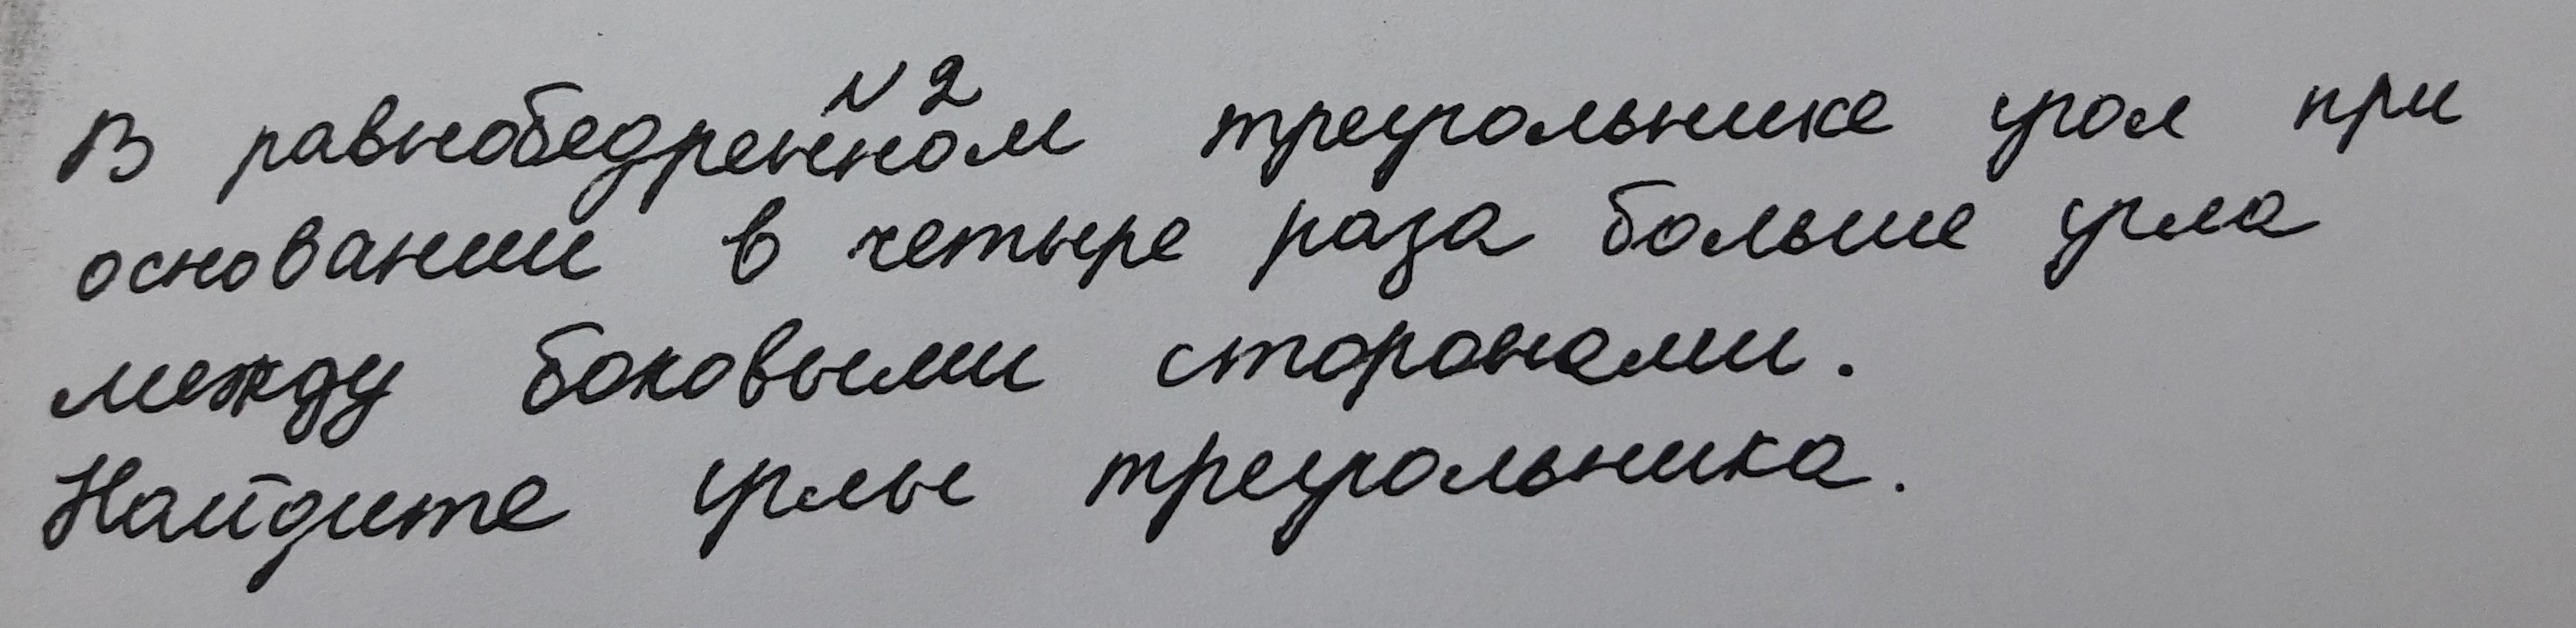 N2
В равнобедренном треугольнике угол при
основании в четыре раза больше угла
между боковыми сторонами.
Найдите углы треугольника.